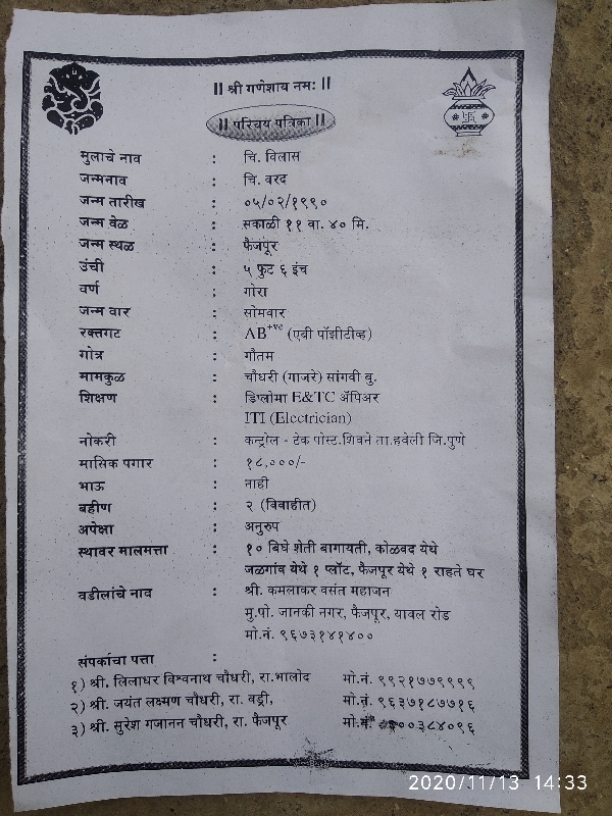 || श्री गणेशाय नमः ||
|| परिचय पत्रिका ||
मुलाचे नाव : चि. विलास
जन्मनाव : चि. वरद
जन्म तारीख : ०५/०२/१९९०
जन्म वेळ : सकाळी ११ वा. ४० मि.
जन्म स्थळ : फैजपूर
उंची : ५ फुट ६ इंच
वर्ण : गोरा
जन्म वार : सोमवार
रक्तगट : AB+ve (एबी पॉझीटीव्ह)
गोत्र : गौतम
मामकुळ : चौधरी (गाजरे) सांगवी बु.
शिक्षण : डिप्लोमा E&TC ॲपिअर
ITI (Electrician)
नोकरी : कन्ट्रोल - टेक पोस्ट.शिवने ता.हवेली जि.पुणे
मासिक पगार : १८,०००/-
भाऊ : नाही
बहीण : २ (विवाहीत)
अपेक्षा : अनुरुप
स्थावर मालमत्ता : १० बिघे शेती बागायती, कोळवद येथे
जळगांव येथे १ प्लॉट, फैजपूर येथे १ राहते घर
वडीलांचे नाव : श्री. कमलाकर वसंत महाजन
मु.पो. जानकी नगर, फैजपूर, यावल रोड
मो.नं. ९६७३१४१४००
संपर्काचा पत्ता :
१) श्री. लिलाधर विश्वनाथ चौधरी, रा.भालोद मो.नं. ९९२१७७९९९९
२) श्री. जयंत लक्ष्मण चौधरी, रा. वद्री, मो.नं. ९६३७१८७७१६
३) श्री. सुरेश गजानन चौधरी, रा. फैजपूर मो.नं.
2020/11/13 14:33